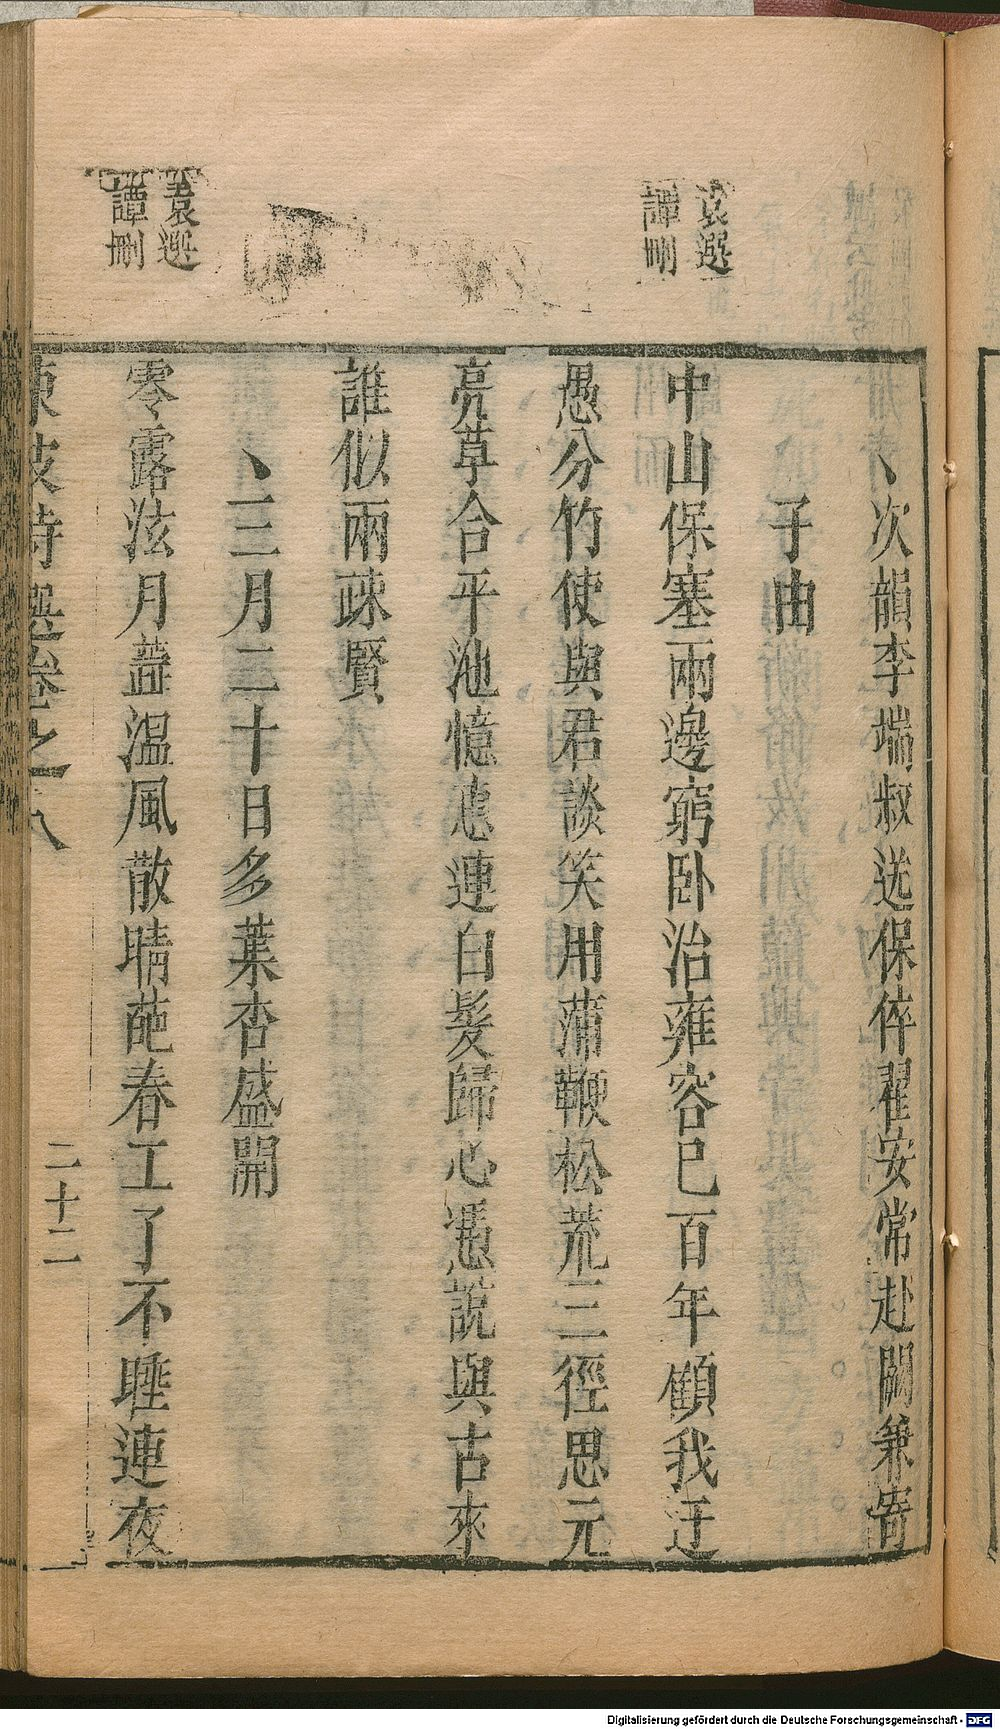 袁選
譚刪
袁選
譚刪
丶次韻李端叔送保倅翟安常赴闕兼寄
子由
中山保塞兩邊窮臥治雍容已百年顧我迂
愚分竹使與君談笑用蒲鞭松荒三徑思元
亮草合平池憶惠連白髮歸心憑說與古來
誰似兩疎賢
丶三月二十日多葉杏盛開
零露泫月蘂溫風散晴葩春工了不睡連夜
東坡詩選卷之八
二十二
Digitalisierung gefördert durch die Deutsche Forschungsgemeinschaft - DFG